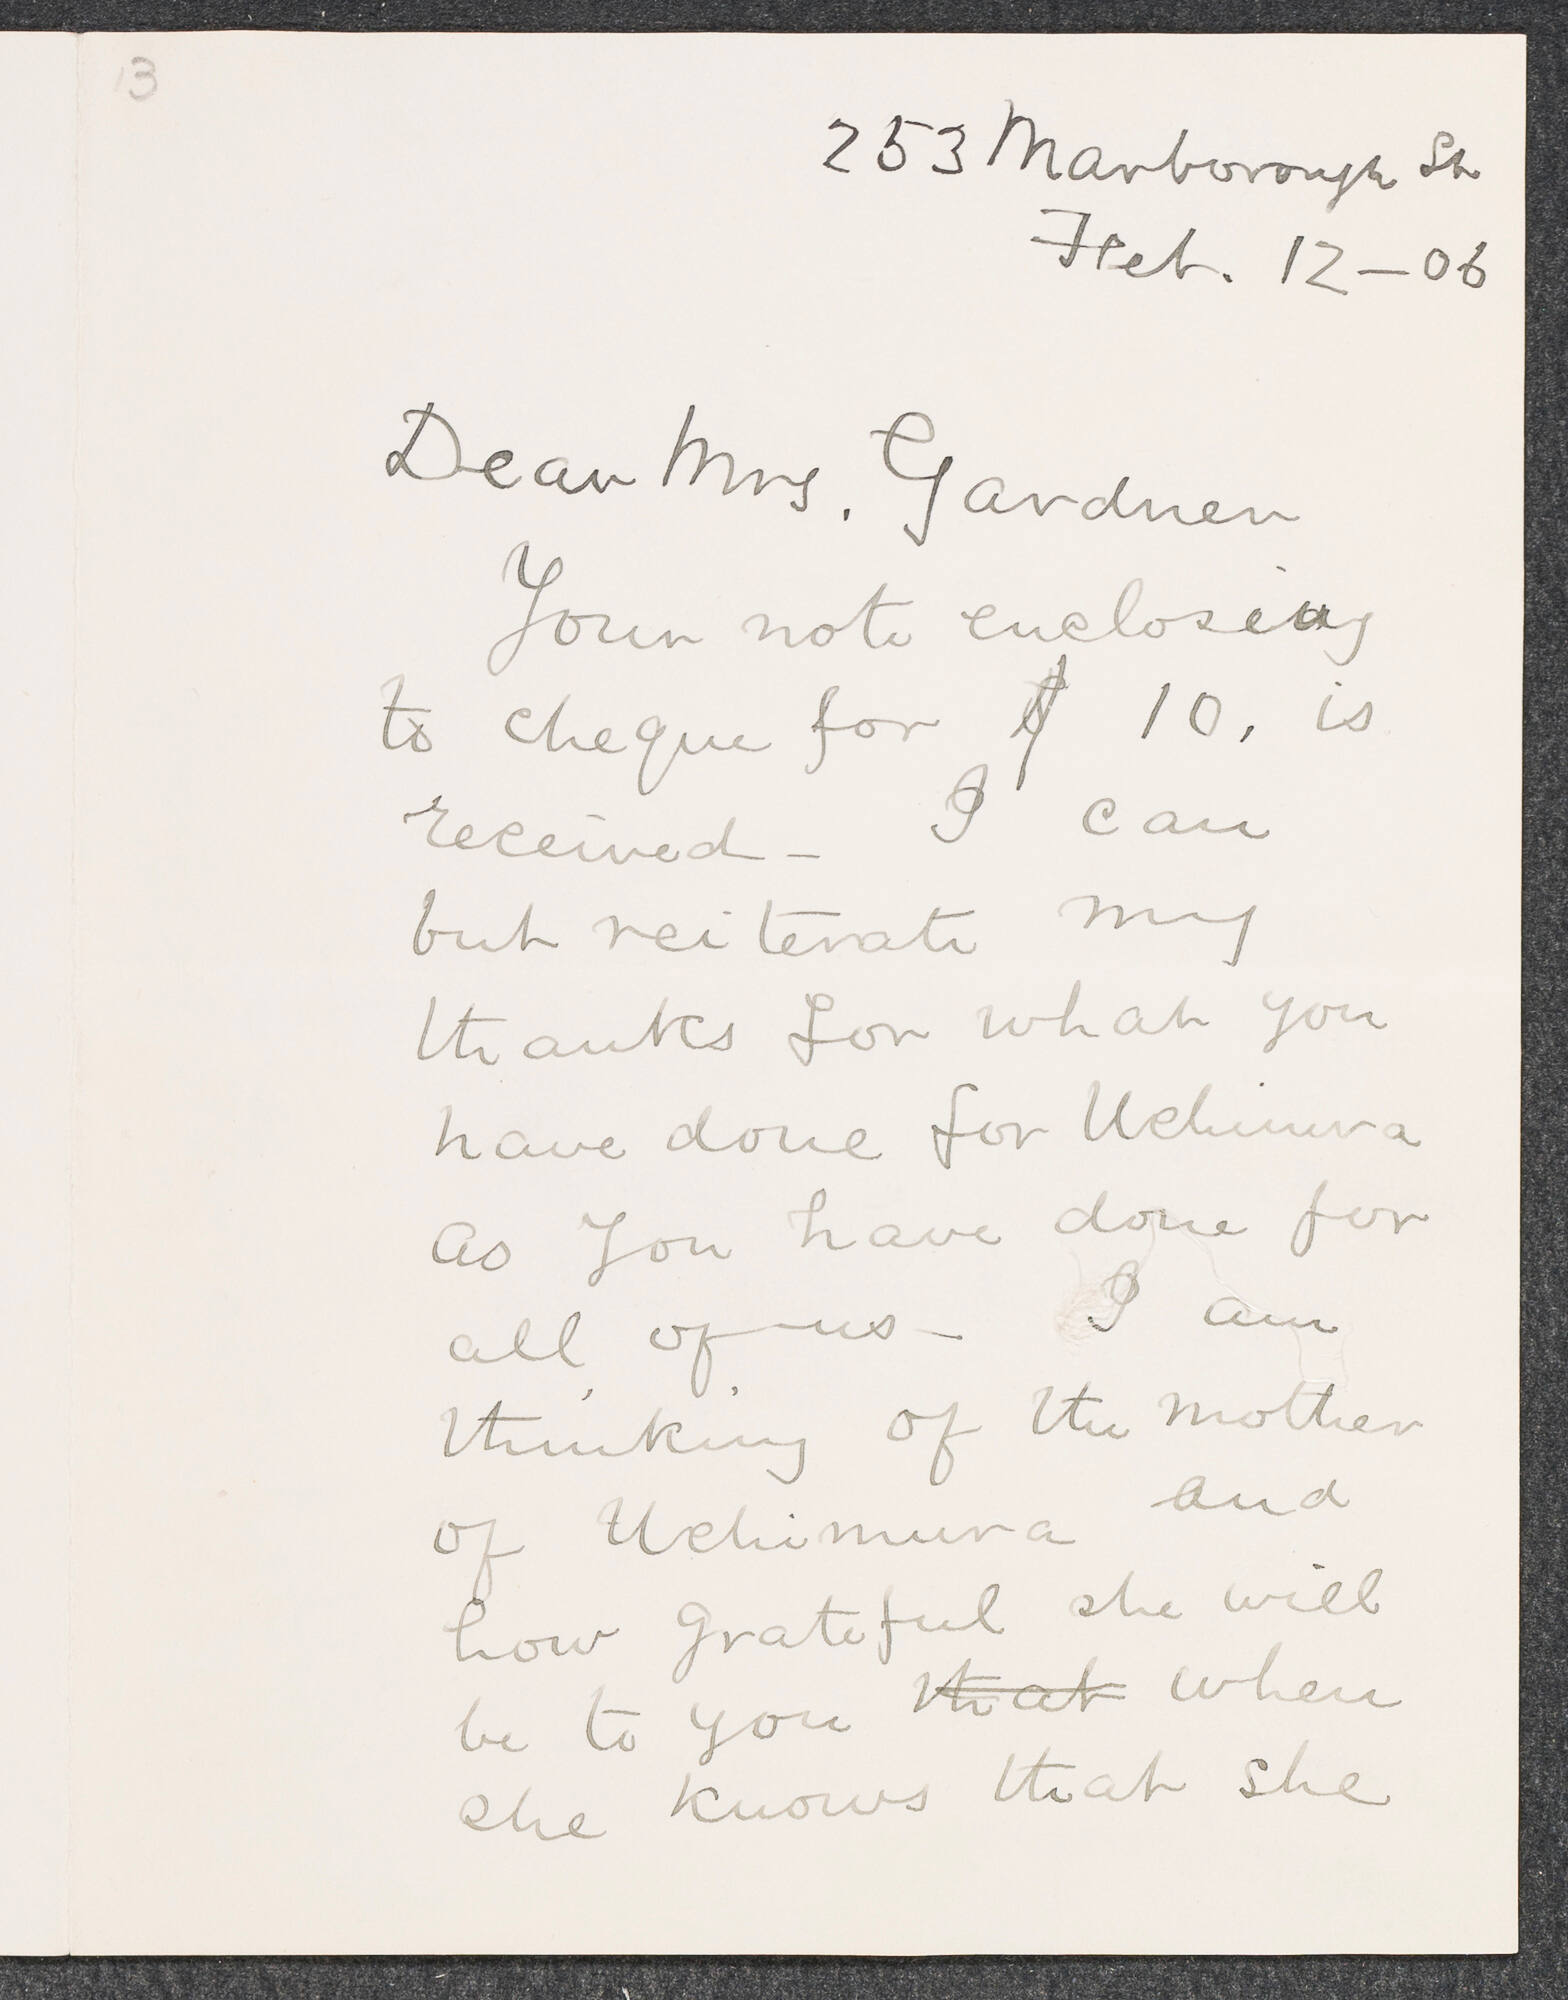 13
253 Marborough St
Feb. 12 – 06
Dear Mrs. Gardner
Your note enclosing
to cheque for $ 10. is
received – I can
but reiterate my
thanks for what you
have done for Uchimura
as you have done for
all of us – I am
thinking of the mother
of Uchimura and
how grateful she will
be to you that when
she knows that she